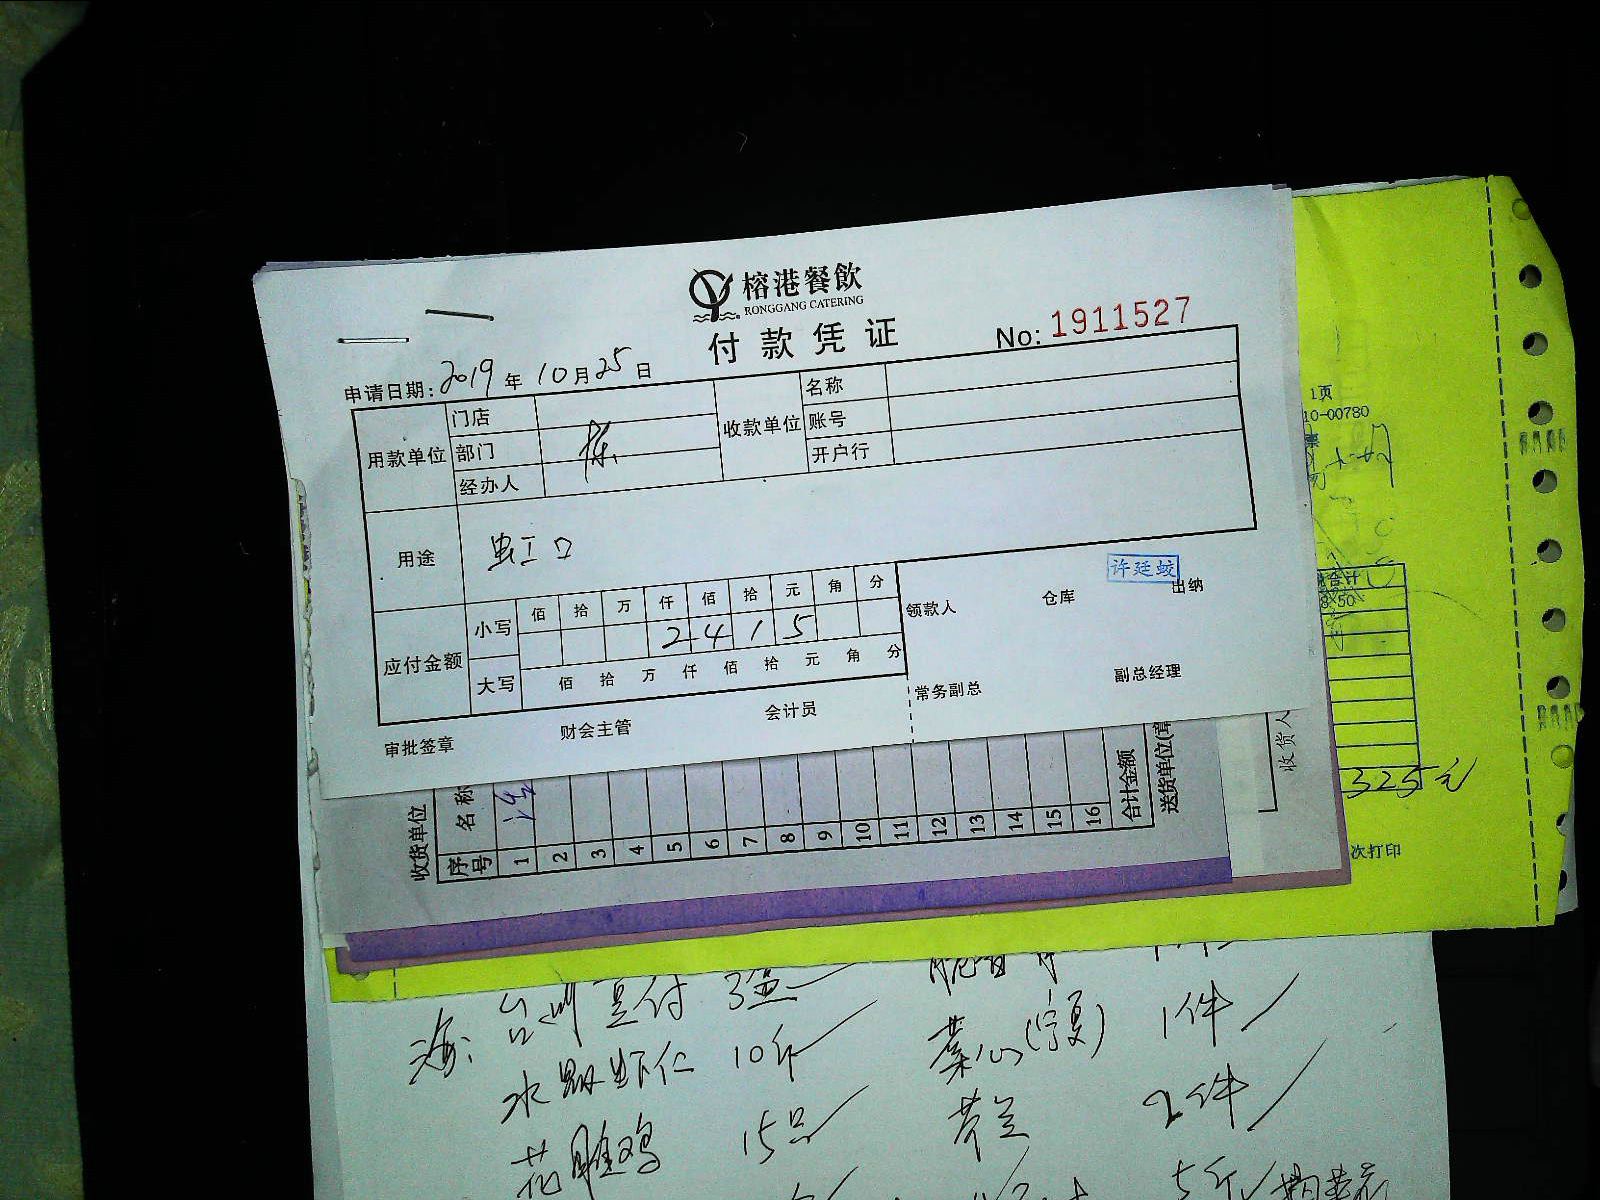 榕港餐飲
RONGGANG CATERING
付款凭证
No: 1911527
申请日期: 2019 年 10 月 25 日
用款单位
门店
部门
经办人
收款单位
名称
账号
开户行
用途 虹口
应付金额
小写
佰 拾 万 仟 佰 拾 元 角 分
2 4 1 5
大写
佰 拾 万 仟 佰 拾 元 角 分
领款人
仓库
许廷蛟
出纳
常务副总
副总经理
审批签章
财会主管
会计员
收货单位
序号
名称
1
2
3
4
5
6
7
8
9
10
11
12
13
14
15
16
合计金额
送货单位(章
收货人
1页
10-00780
合计
8.50
325元
次打印
海: 台州豆付 3盒
水晶虾仁 10斤
菜心(宁夏) 1件
花雕鸡 15只
芥兰 2件
5斤